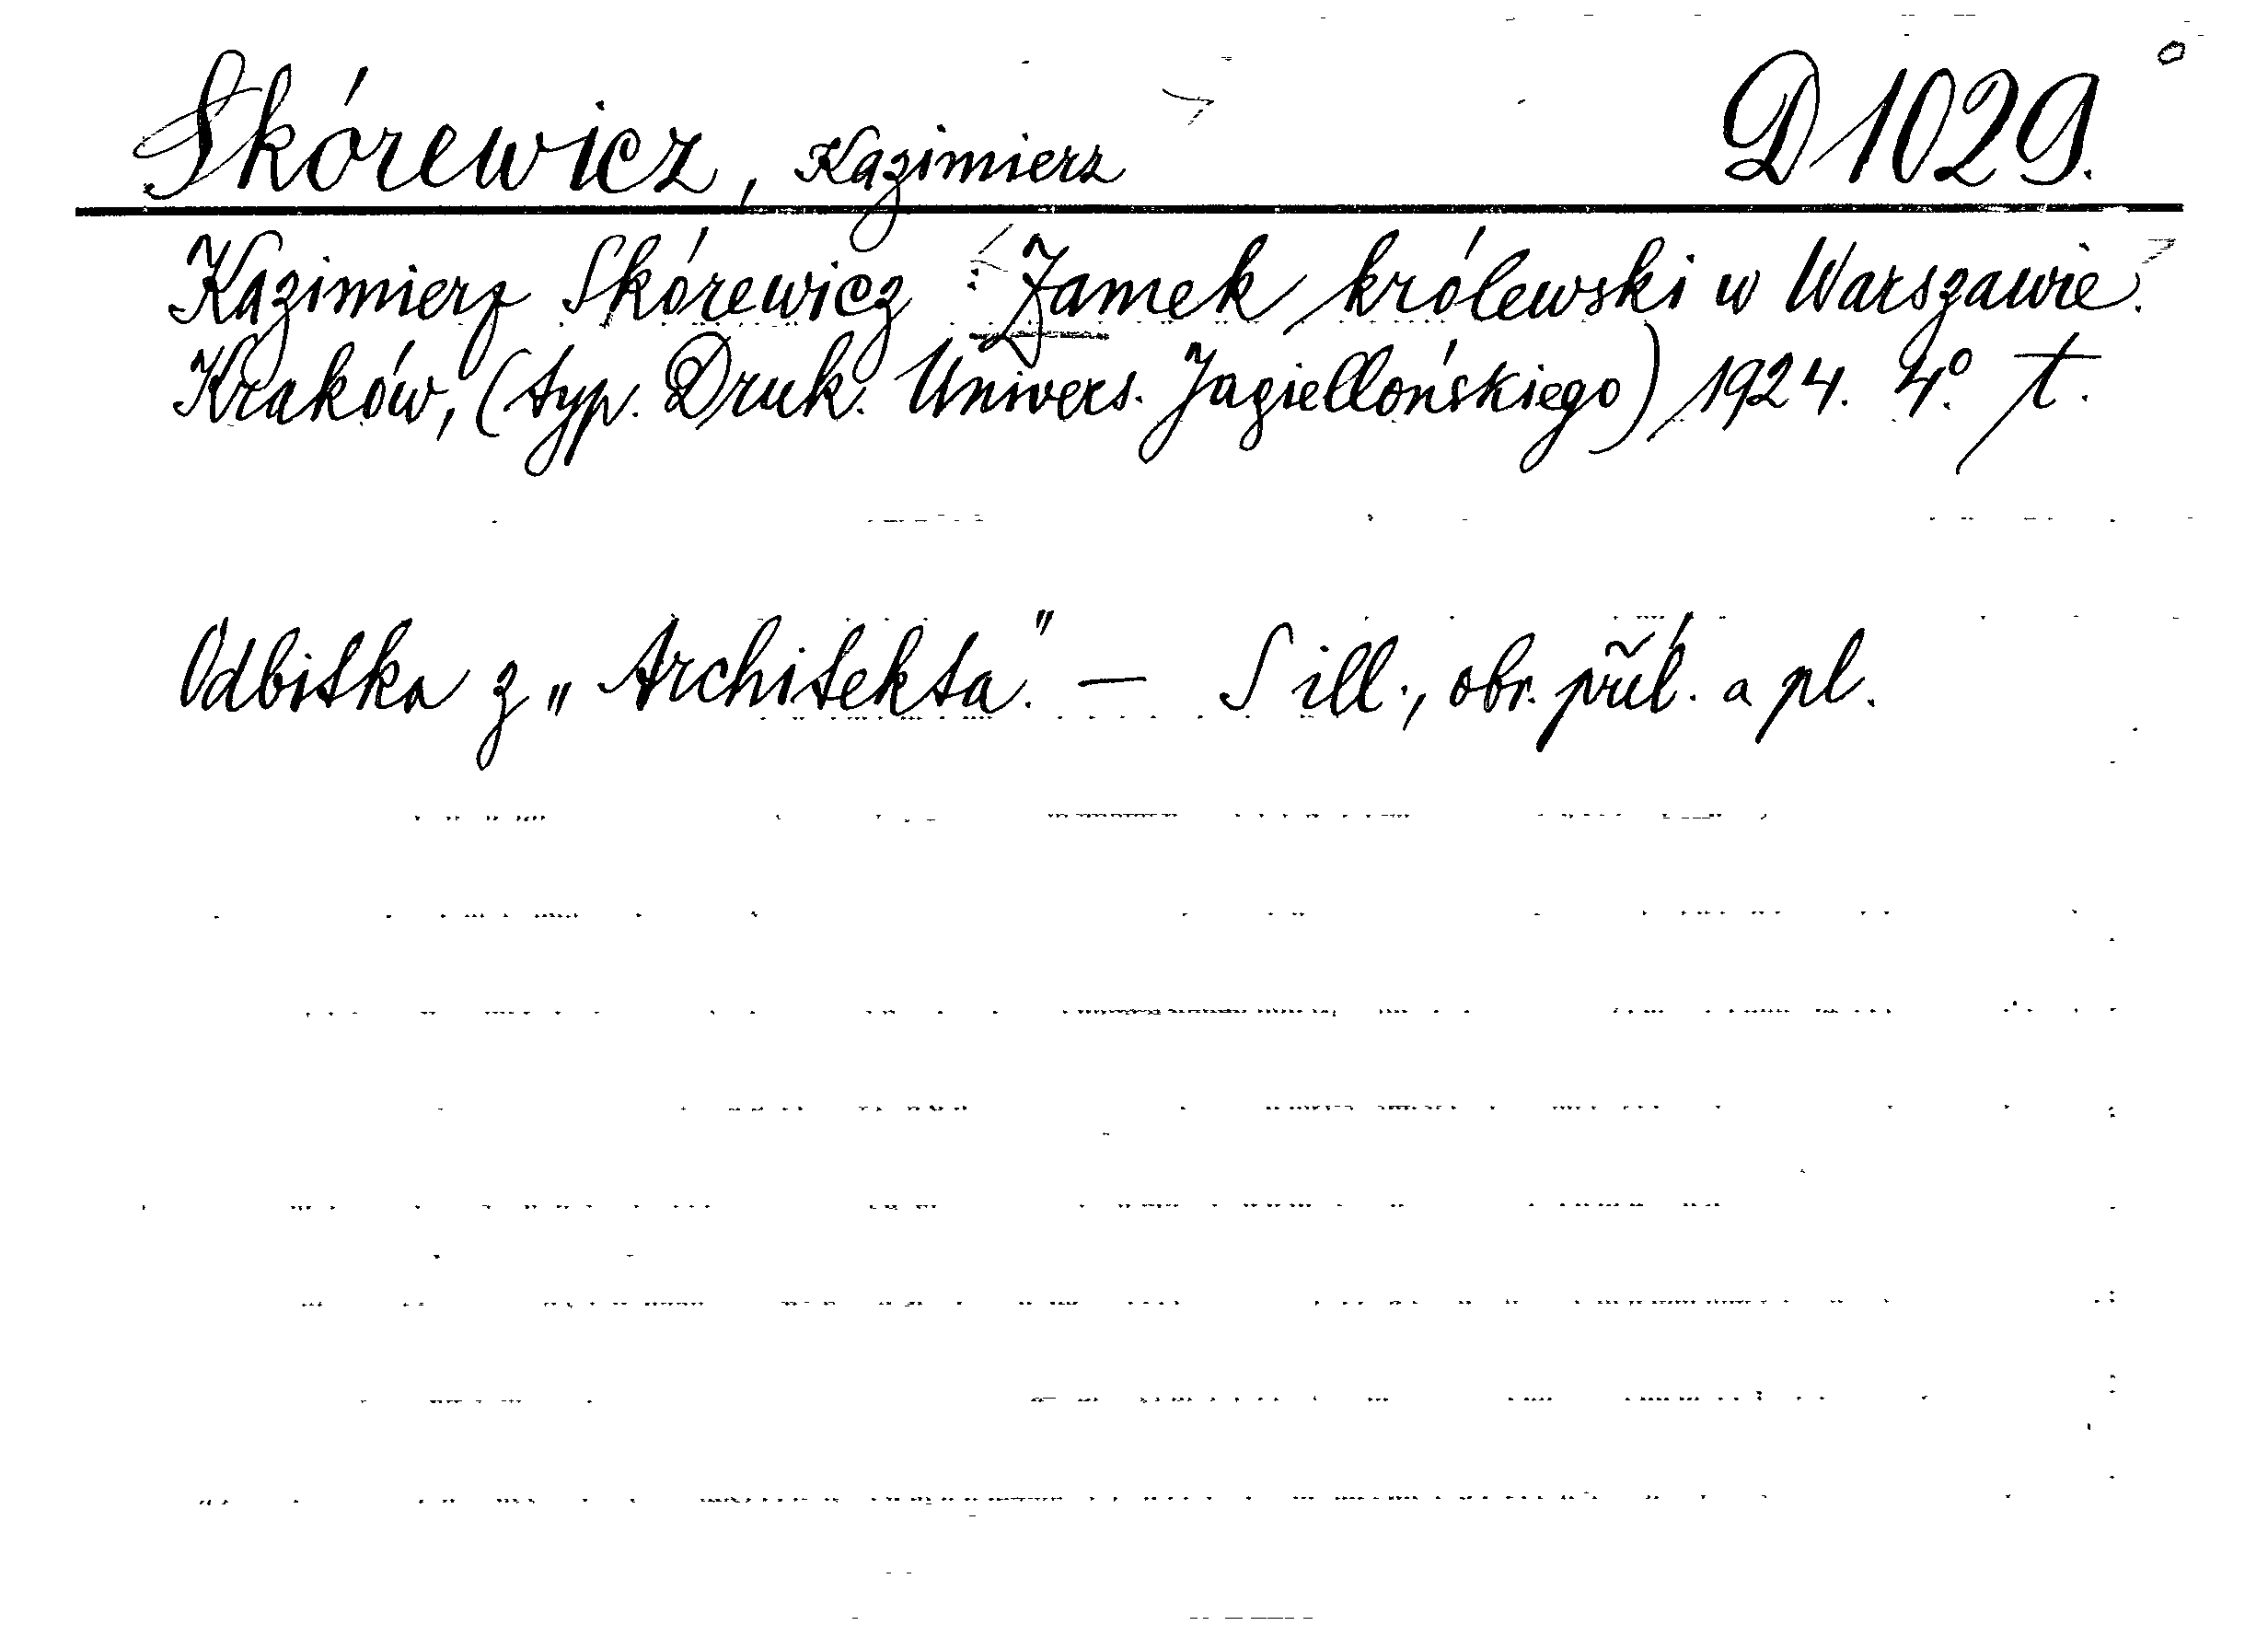 Skórewicz, Kazimierz D 1029.
Kazimierz Skórewicz : Zamek królewski w Warszawie.
Kraków, (typ. Druk. Univers. Jagiellońskiego) 1924. 4° t.
Odbitka z „Architekta." — S ill., obr. příl. a pl.